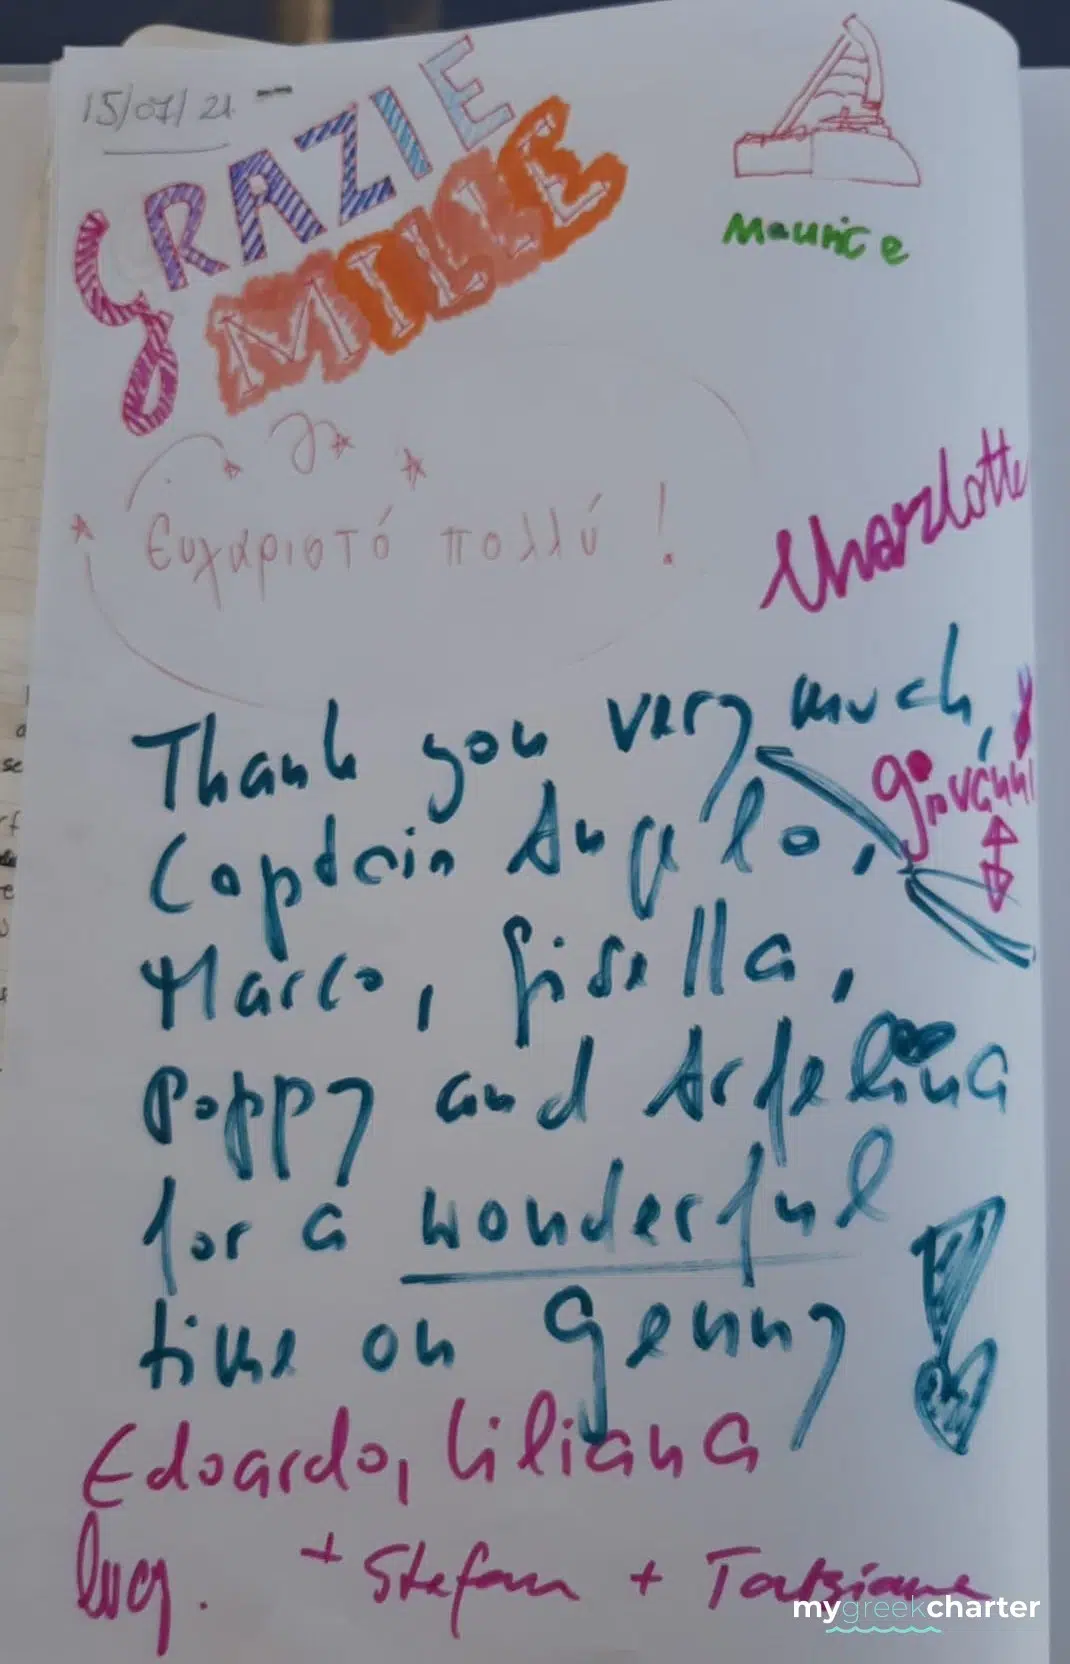 15/07/21
GRAZIE
MILLE
Maurice
Ευχαριστό πολλύ !
Charlotte
Thank you very much,
Giovanni
Captain Angelo,
Marco, Gisella,
Poppy and Argelina
for a wonderful
time on Genny
Edoardo, Liliana
+ Stefan + Tatsiana
mygreekcharter